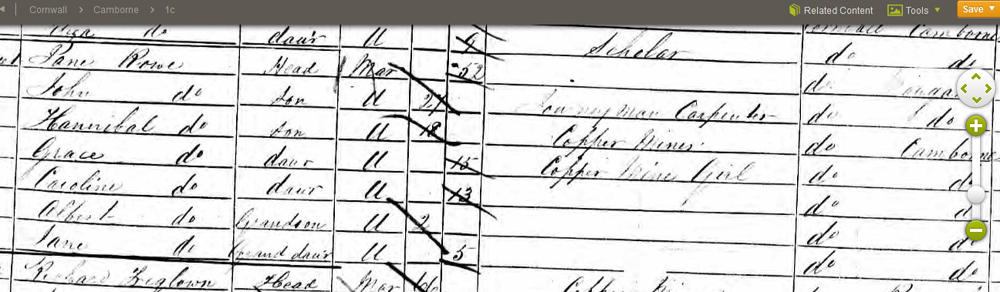 Cornwall > Camborne > 1c Related Content Tools Save
do daur U 9 Scholar do
Jane Rowe Head Mar 52 do do
John do Son U 24 Journeyman Carpenter do do
Hannibal do Son U 18 Copper Miner do Camborne
Grace do daur U 15 Copper Mine Girl do do
Caroline do daur U 13 do do
Albert do Grandson U 2 do do
Jane do Grand daur U 5 do do
Richard Head Mar Copper